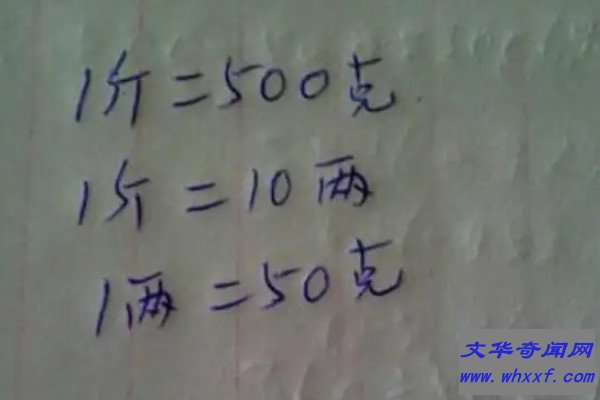 1斤=500克
1斤=10两
1两=50克
文华奇闻网
www.whxxf.com